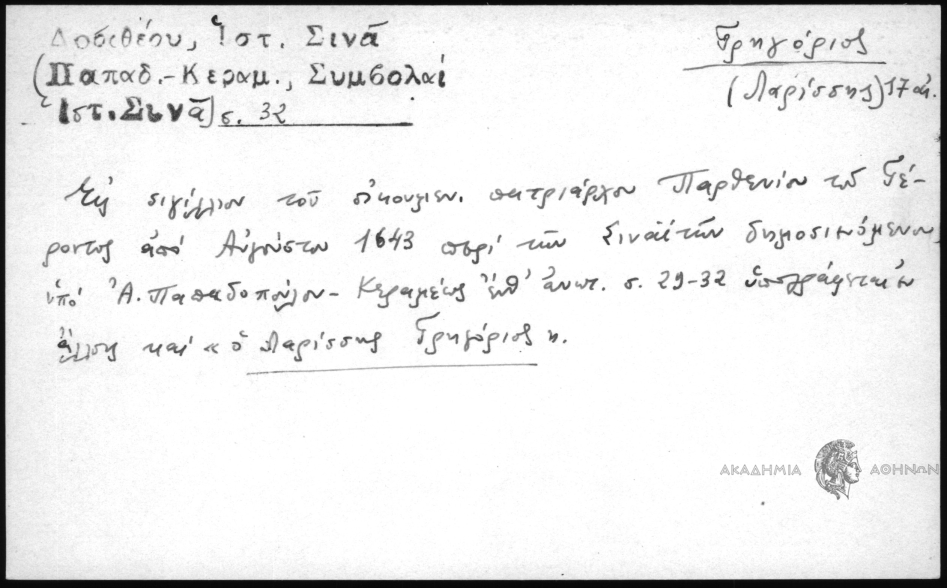 Δοσιθέου, Ἱστ. Σινᾶ
(Παπαδ.-Κεραμ., Συμβολαί
Ἱστ. Σινᾶ) σ. 32
Γρηγόριος
(Λαρίσσης) 17 αἰ.
Εἰς σιγίλλιον τοῦ οἰκουμεν. πατριάρχου Παρθενίου τοῦ Γέ-
ροντος ἀπό Αὐγούστου 1643 περί τῶν Σιναϊτῶν δημοσιευόμενον
ὑπό Ἀ. Παπαδοπούλου-Κεραμέως ἔνθ' ἀνωτ. σ. 29-32 ὑπογράφεται
καί «ὁ Λαρίσσης Γρηγόριος».
ΑΚΑΔΗΜΙΑ ΑΘΗΝΩΝ